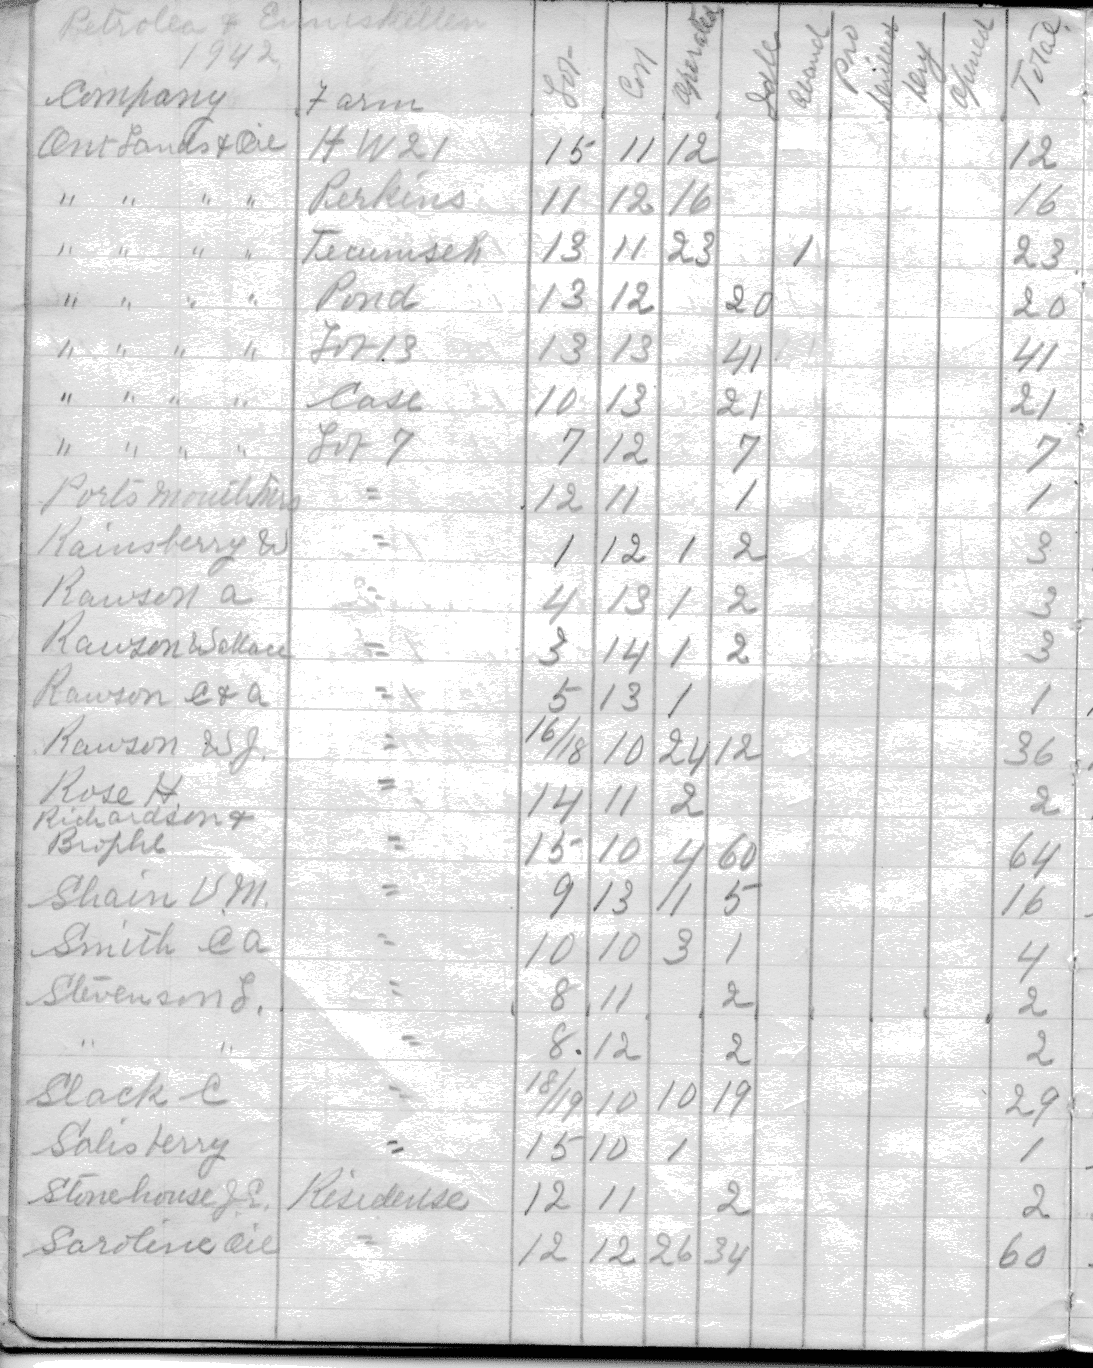 Petrolea & Enniskillen
1942
Company Farm Lot Con Operated Idle Aband Pro Opened Total
Ont Lands & Oil H W 21 15 11 12 12
" " " " Perkins 11 12 16 16
" " " " Tecumseh 13 11 23 1 23
" " " " Pond 13 12 20 20
" " " " Lot 13 13 13 41 41
" " " " Case 10 13 21 21
" " " " Lot 7 7 12 7 7
Ports = 12 11 1 1
Rainsberry W = 1 12 1 2 3
Rawson A = 4 13 1 2 3
Rawson Wallace = 3 14 1 2 3
Rawson C & A = 5 13 1 1
Rawson W J. = 16/18 10 24 12 36
Rose H = 14 11 2 2
Richardson &
Brophe = 15 10 4 60 64
Shain V.M. = 9 13 11 5 16
Smith C A = 10 10 3 1 4
Stevenson L. = 8 11 2 2
" " = 8 12 2 2
Slack C = 18/19 10 10 19 29
Salisberry = 15 10 1 1
Stonehouse J.E. Residense 12 11 2 2
Saroline Oil = 12 12 26 34 60